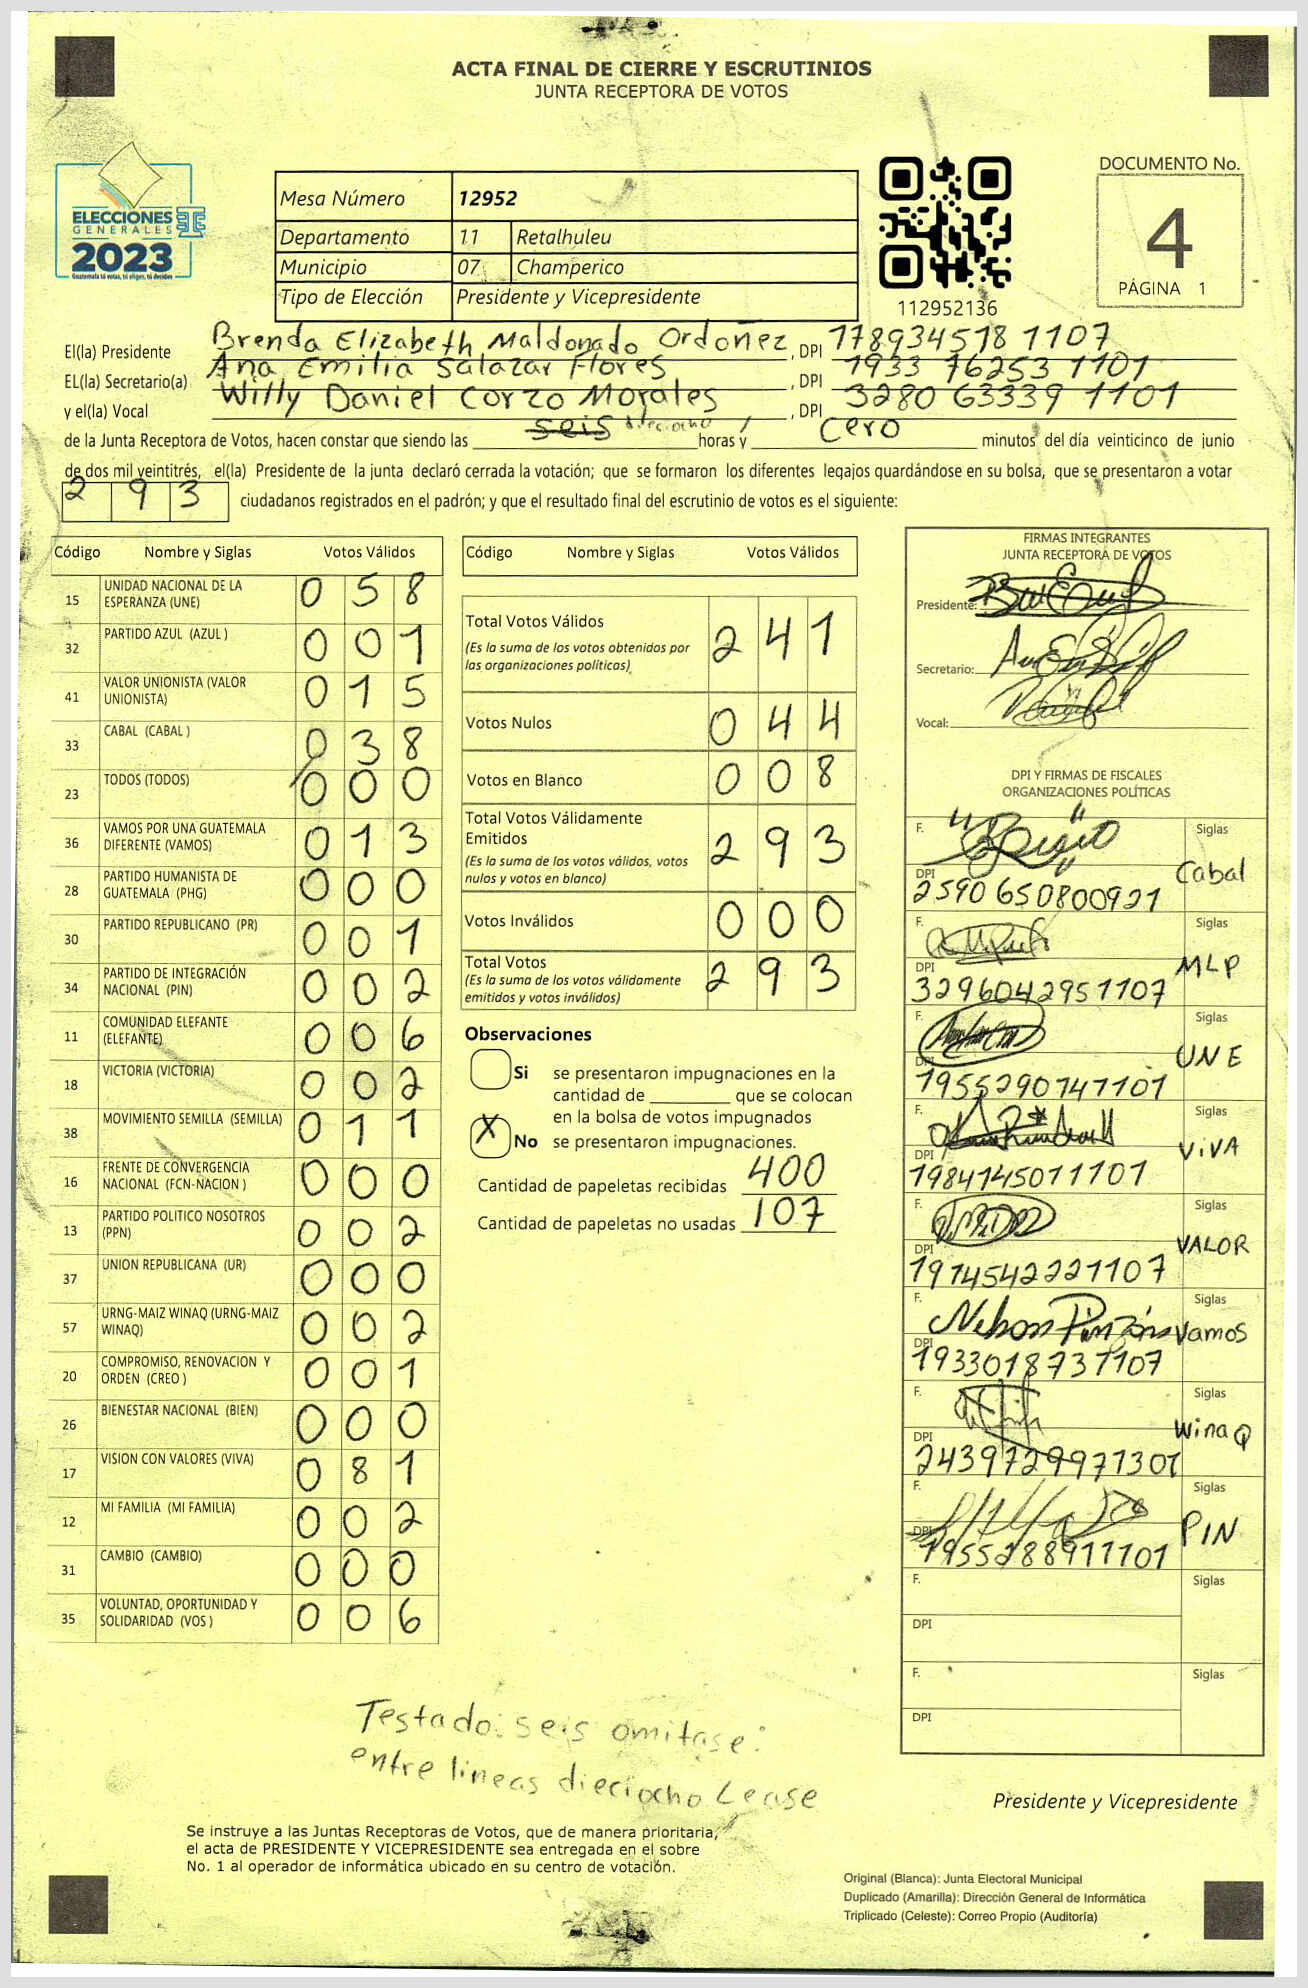 ACTA FINAL DE CIERRE Y ESCRUTINIOS
JUNTA RECEPTORA DE VOTOS
ELECCIONES
GENERALES
2023
Guatemala tú votas, tú eliges, tú decides
Mesa Número 12952
Departamento 11 Retalhuleu
Municipio 07 Champerico
Tipo de Elección Presidente y Vicepresidente
112952136
DOCUMENTO No.
4
PÁGINA 1
El(la) Presidente Brenda Elizabeth Maldonado Ordoñez, DPI 178934518 1107
EL(la) Secretario(a) Ana Emilia Salazar Flores, DPI 1933 76253 1101
y el(la) Vocal Willy Daniel Corzo Morales, DPI 3280 63339 1101
de la Junta Receptora de Votos, hacen constar que siendo las seis dieciocho horas y cero minutos del día veinticinco de junio
de dos mil veintitrés, el(la) Presidente de la junta declaró cerrada la votación; que se formaron los diferentes legajos quardándose en su bolsa, que se presentaron a votar
293 ciudadanos registrados en el padrón; y que el resultado final del escrutinio de votos es el siguiente:
Código Nombre y Siglas Votos Válidos
15 UNIDAD NACIONAL DE LA ESPERANZA (UNE) 0 5 8
32 PARTIDO AZUL (AZUL ) 0 0 1
41 VALOR UNIONISTA (VALOR UNIONISTA) 0 1 5
33 CABAL (CABAL ) 0 3 8
23 TODOS (TODOS) 0 0 0
36 VAMOS POR UNA GUATEMALA DIFERENTE (VAMOS) 0 1 3
28 PARTIDO HUMANISTA DE GUATEMALA (PHG) 0 0 0
30 PARTIDO REPUBLICANO (PR) 0 0 1
34 PARTIDO DE INTEGRACIÓN NACIONAL (PIN) 0 0 2
11 COMUNIDAD ELEFANTE (ELEFANTE) 0 0 6
18 VICTORIA (VICTORIA) 0 0 2
38 MOVIMIENTO SEMILLA (SEMILLA) 0 1 1
16 FRENTE DE CONVERGENCIA NACIONAL (FCN-NACION ) 0 0 0
13 PARTIDO POLITICO NOSOTROS (PPN) 0 0 2
37 UNION REPUBLICANA (UR) 0 0 0
57 URNG-MAIZ WINAQ (URNG-MAIZ WINAQ) 0 0 2
20 COMPROMISO, RENOVACION Y ORDEN (CREO ) 0 0 1
26 BIENESTAR NACIONAL (BIEN) 0 0 0
17 VISION CON VALORES (VIVA) 0 8 1
12 MI FAMILIA (MI FAMILIA) 0 0 2
31 CAMBIO (CAMBIO) 0 0 0
35 VOLUNTAD, OPORTUNIDAD Y SOLIDARIDAD (VOS ) 0 0 6
Código Nombre y Siglas Votos Válidos
Total Votos Válidos 2 4 1
(Es la suma de los votos obtenidos por
las organizaciones políticas)
Votos Nulos 0 4 4
Votos en Blanco 0 0 8
Total Votos Válidamente
Emitidos 2 9 3
(Es la suma de los votos válidos, votos
nulos y votos en blanco)
Votos Inválidos 0 0 0
Total Votos 2 9 3
(Es la suma de los votos válidamente
emitidos y votos inválidos)
Observaciones
Si se presentaron impugnaciones en la
cantidad de ________ que se colocan
en la bolsa de votos impugnados
X No se presentaron impugnaciones.
Cantidad de papeletas recibidas 400
Cantidad de papeletas no usadas 107
FIRMAS INTEGRANTES
JUNTA RECEPTORA DE VOTOS
Presidente:
Secretario:
Vocal:
DPI Y FIRMAS DE FISCALES
ORGANIZACIONES POLÍTICAS
F. Siglas
Cabal
DPI 2590 650800921
F. Siglas
MLP
DPI 3296042951107
F. Siglas
UNE
DPI 1955290747101
F. Siglas
ViVA
DPI 1984145011101
F. Siglas
VALOR
DPI 1974542221107
F. Nelson Pinzón Siglas
Vamos
DPI 1933018737107
F. Siglas
WinaQ
DPI 2439729971301
F. Siglas
PIN
DPI 1955288911101
F. Siglas
DPI
F. Siglas
DPI
Testado: seis omitase:
entre lineas dieciocho Lease
Presidente y Vicepresidente
Se instruye a las Juntas Receptoras de Votos, que de manera prioritaria,
el acta de PRESIDENTE Y VICEPRESIDENTE sea entregada en el sobre
No. 1 al operador de informática ubicado en su centro de votación.
Original (Blanca): Junta Electoral Municipal
Duplicado (Amarilla): Dirección General de Informática
Triplicado (Celeste): Correo Propio (Auditoría)